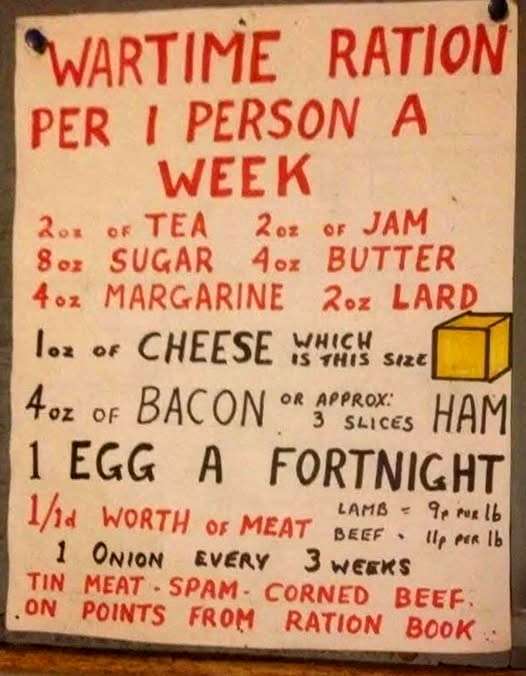 WARTIME RATION
PER 1 PERSON A
WEEK
2oz OF TEA 2oz OF JAM
8oz SUGAR 4oz BUTTER
4oz MARGARINE 2oz LARD
1oz OF CHEESE WHICH IS THIS SIZE
4oz OF BACON OR APPROX: 3 SLICES HAM
1 EGG A FORTNIGHT
1/1d WORTH OF MEAT LAMB = 9p PUR lb
BEEF . 11p PER lb
1 ONION EVERY 3 WEEKS
TIN MEAT - SPAM - CORNED BEEF.
ON POINTS FROM RATION BOOK